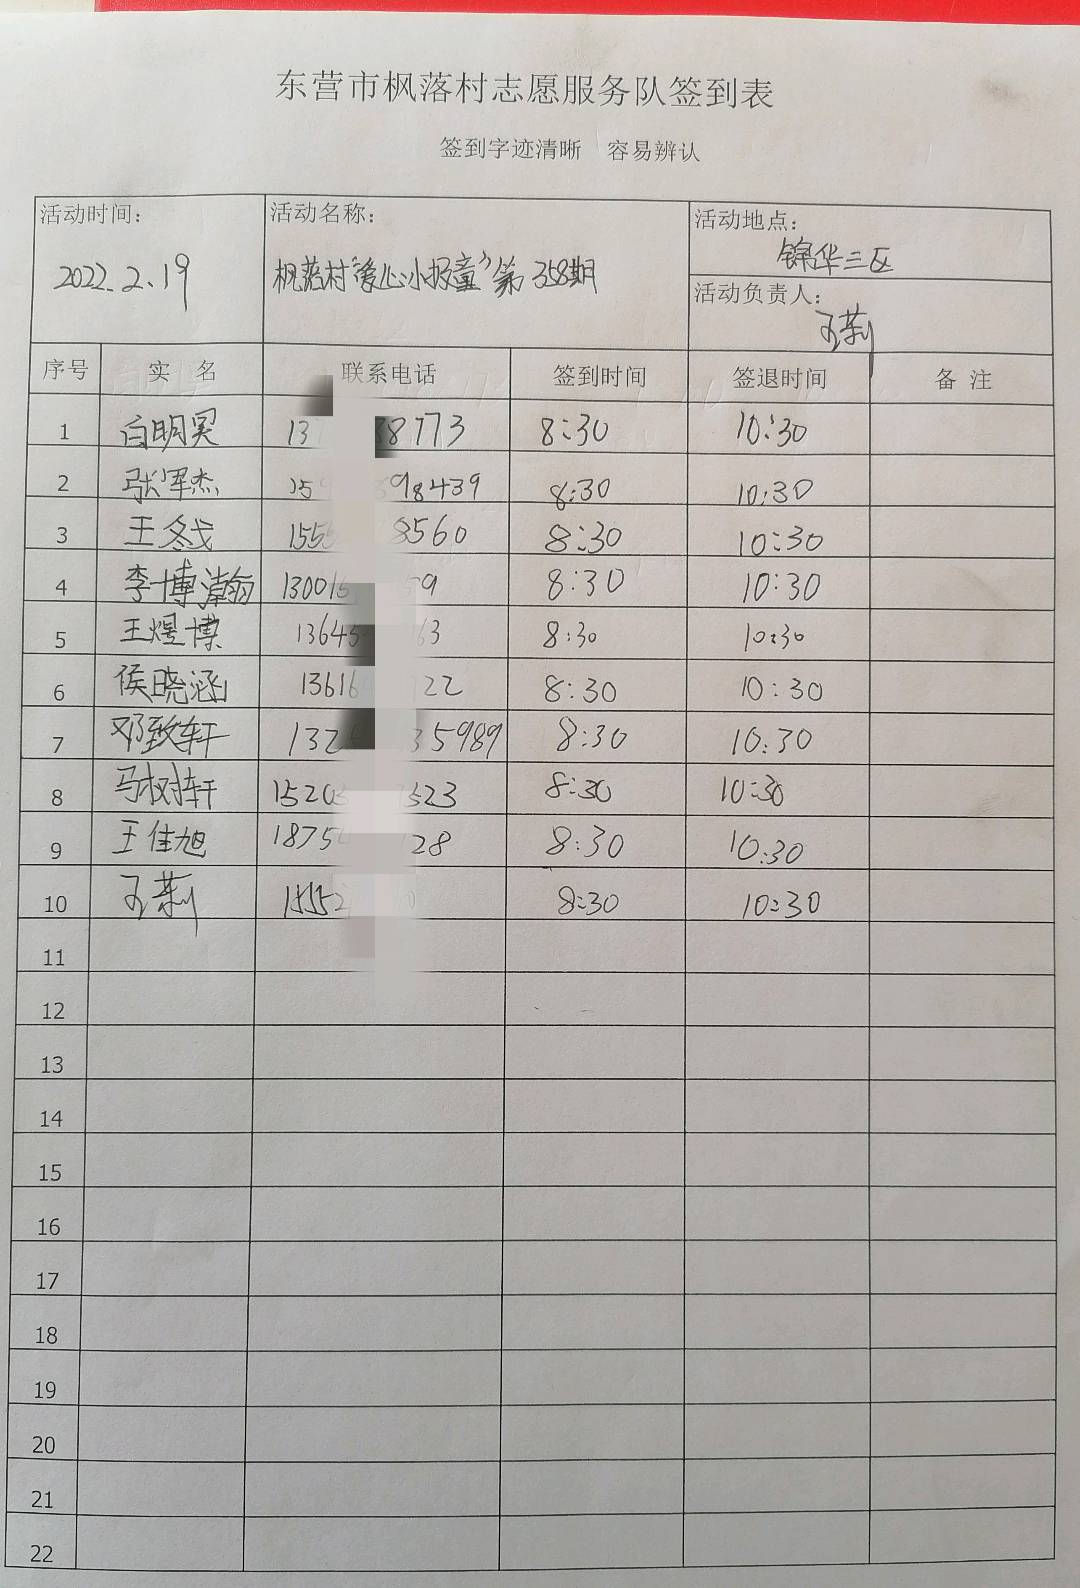 东营市枫落村志愿服务队签到表
签到字迹清晰 容易辨认
活动时间: 活动名称: 活动地点:
2022.2.19 枫落村“爱心小报童”第358期 锦华三区
活动负责人:
王莉
序号 实 名 联系电话 签到时间 签退时间 备 注
1 白明昊 13 38773 8:30 10:30
2 张军杰 159 98439 8:30 10:30
3 王冬戈 1555 8560 8:30 10:30
4 李博瀚 13001 59 8:30 10:30
5 王煜博 1364 63 8:30 10:30
6 侯晓涵 13616 22 8:30 10:30
7 邓致轩 132 35989 8:30 10:30
8 马树轩 15205 523 8:30 10:30
9 王佳旭 1875 128 8:30 10:30
10 王莉 15552 0 8:30 10:30
11
12
13
14
15
16
17
18
19
20
21
22